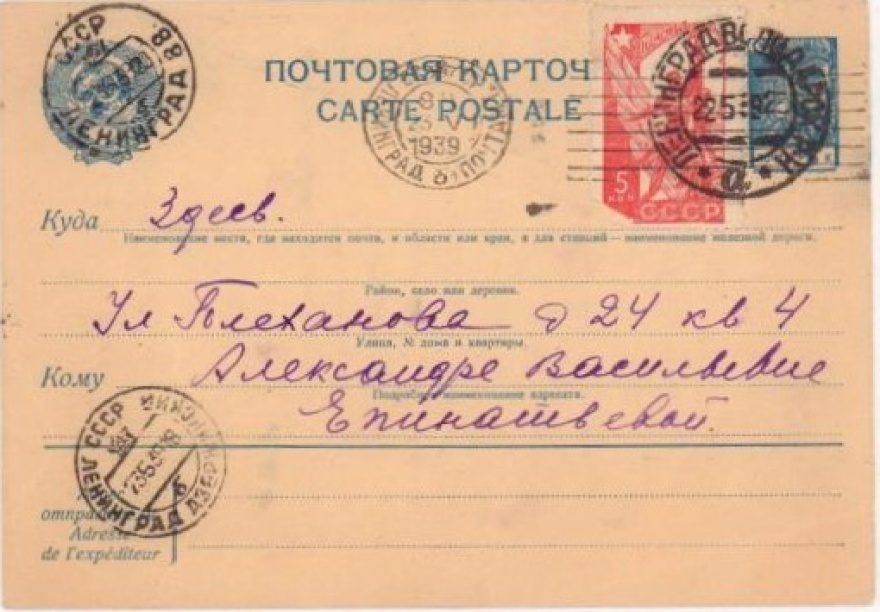 СССР
ЛЕНИНГРАД 88
б
ПОЧТОВАЯ КАРТОЧ
CARTE POSTALE
1939
ПОЧТА
22539
а
5
КОП
СССР
Куда Здесь.
Наименование места, где находится почта, и области или края, а для станций — наименование железной дороги.
Район, село или деревня.
Ул Плеханова д 24 кв 4
Улица, № дома и квартиры.
Кому Александре Васильевне
Подробное наименование адресата.
Епинашьевой.
СССР
ЛЕНИНГРАД
23539
б
отпра
Adresse
de l'expéditeur